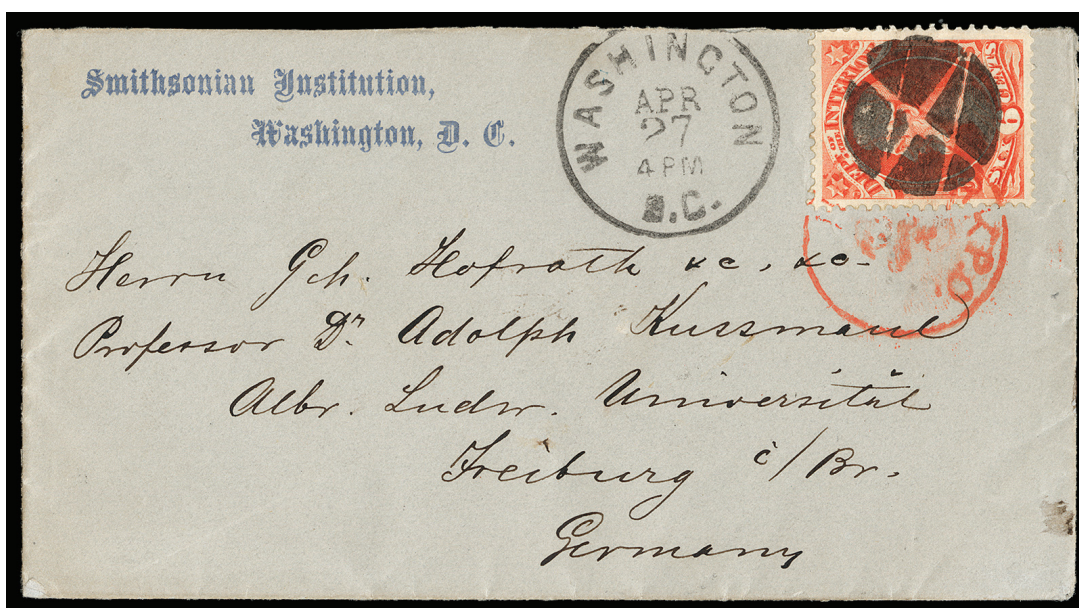 Smithsonian Institution,
Washington, D. C.
WASHINGTON
APR
27
4 PM
D.C.
DEPT. OF THE INTERIOR
6 CENTS
PD.
Herrn Geh. Hofrath &c, &c-
Professor Dr. Adolph Kussmaul
Albr. Ludw. Universität
Freiburg i/Br.
Germany